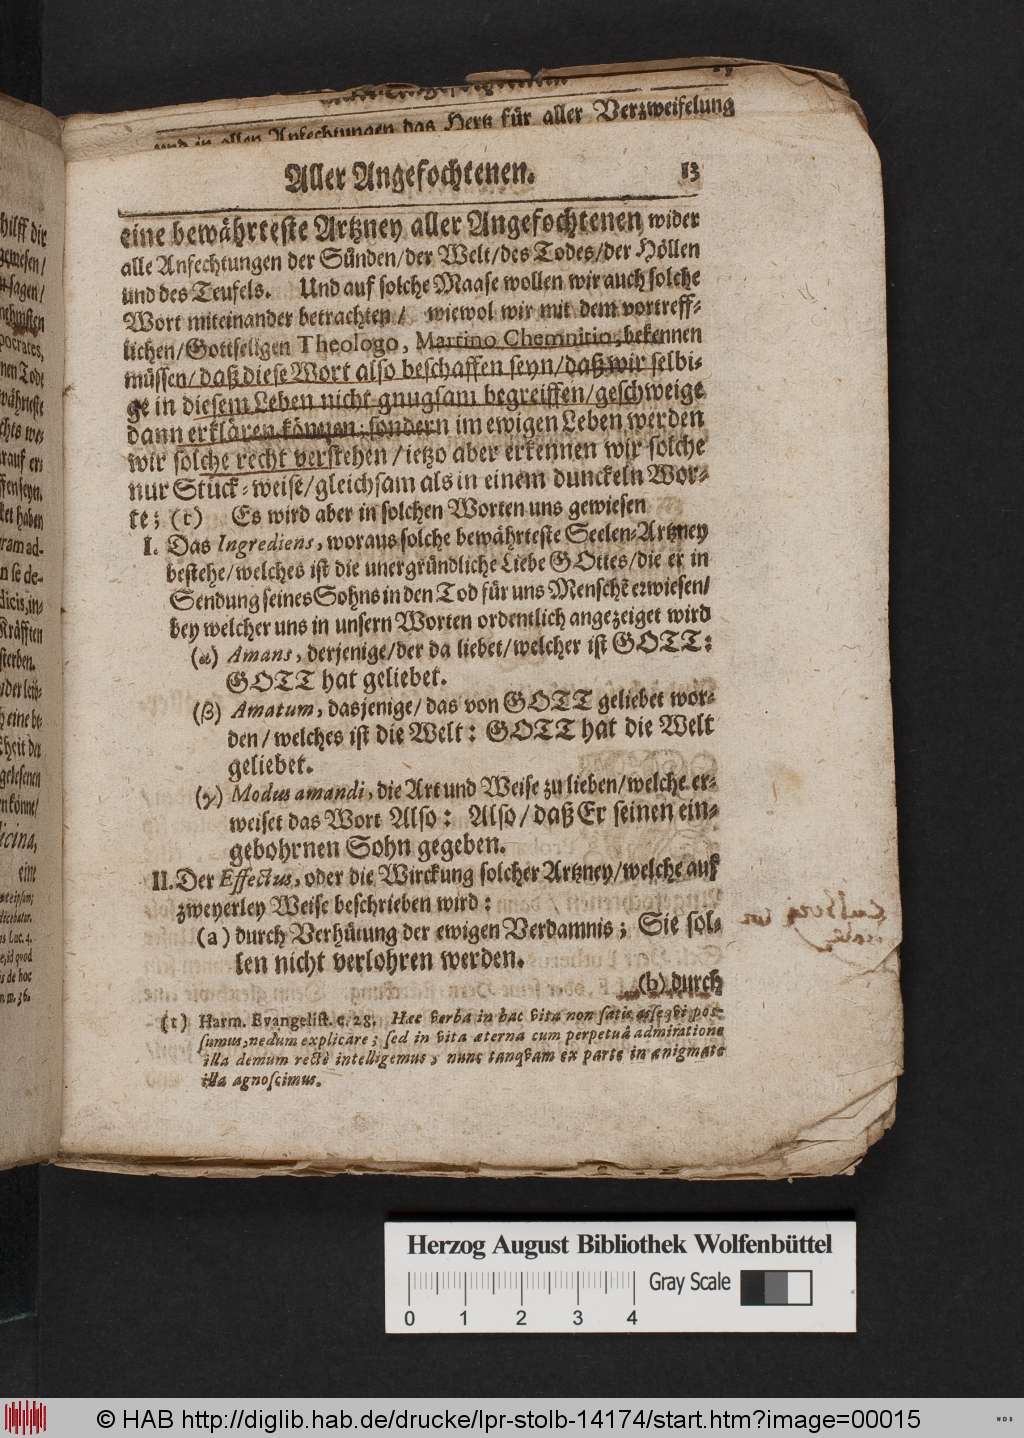 und in allen Anfechtungen das Hertz für aller Verzweifelung
Aller Angefochtenen. 13
eine bewährteste Artzney aller Angefochtenen wider
alle Anfechtungen der Sünden/der Welt/des Todes/der Höllen
und des Teufels. Und auf solche Maase wollen wir auch solche
Wort miteinander betrachten/ wiewol wir mit dem vortreff-
lichen/Gottseligen Theologo, Martino Chemnitio, bekennen
müssen/daß diese Wort also beschaffen seyn/daß wir selbi-
ge in diesem Leben nicht gnugsam begreiffen/geschweige
dann erklären können; sondern im ewigen Leben werden
wir solche recht verstehen/ietzo aber erkennen wir solche
nur Stück-weise/gleichsam als in einem dunckeln Wor-
te; (r) Es wird aber in solchen Worten uns gewiesen
I. Das Ingrediens, woraus solche bewährteste Seelen-Artzney
bestehe/welches ist die unergründliche Liebe GOttes/die er in
Sendung seines Sohns in den Tod für uns Menschē erwiesen/
bey welcher uns in unsern Worten ordentlich angezeiget wird
(α) Amans, derjenige/der da liebet/welcher ist GOTT:
GOTT hat geliebet.
(β) Amatum, dasjenige/das von GOTT geliebet wor-
den/welches ist die Welt: GOTT hat die Welt
geliebet.
(γ) Modus amandi, die Art und Weise zu lieben/welche er-
weiset das Wort Also: Also/daß Er seinen ein-
gebohrnen Sohn gegeben.
II. Der Effectus, oder die Wirckung solcher Artzney/welche auf
zweyerley Weise beschrieben wird:
(a) durch Verhütung der ewigen Verdamnis; Sie sol-
len nicht verlohren werden.
(b) durch
(r) Harm. Evangelist. c. 28. Hæc verba in hac vita non satis asseqvi pos-
sumus, nedum explicare; sed in vita æterna cum perpetuâ admiratione
illa demum rectè intelligemus, nunc tanqvam ex parte in ænigmate
illa agnoscimus.
Herzog August Bibliothek Wolfenbüttel
Gray Scale
0 1 2 3 4
© HAB http://diglib.hab.de/drucke/lpr-stolb-14174/start.htm?image=00015